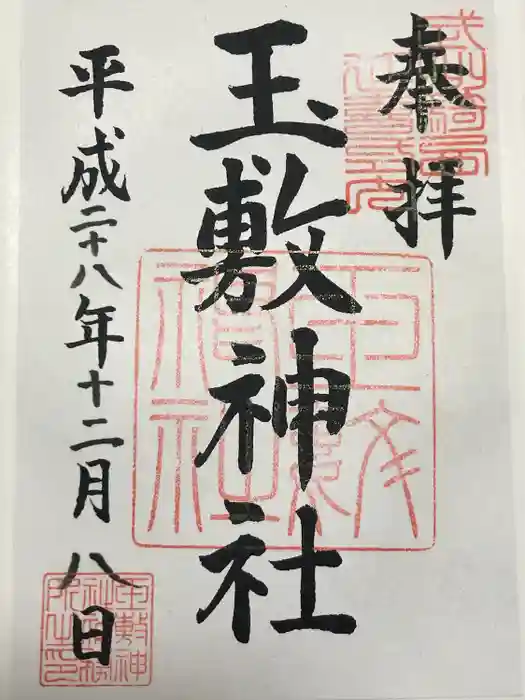 奉拝
玉敷神社
平成二十八年十二月八日
玉敷神
社社務
所之印